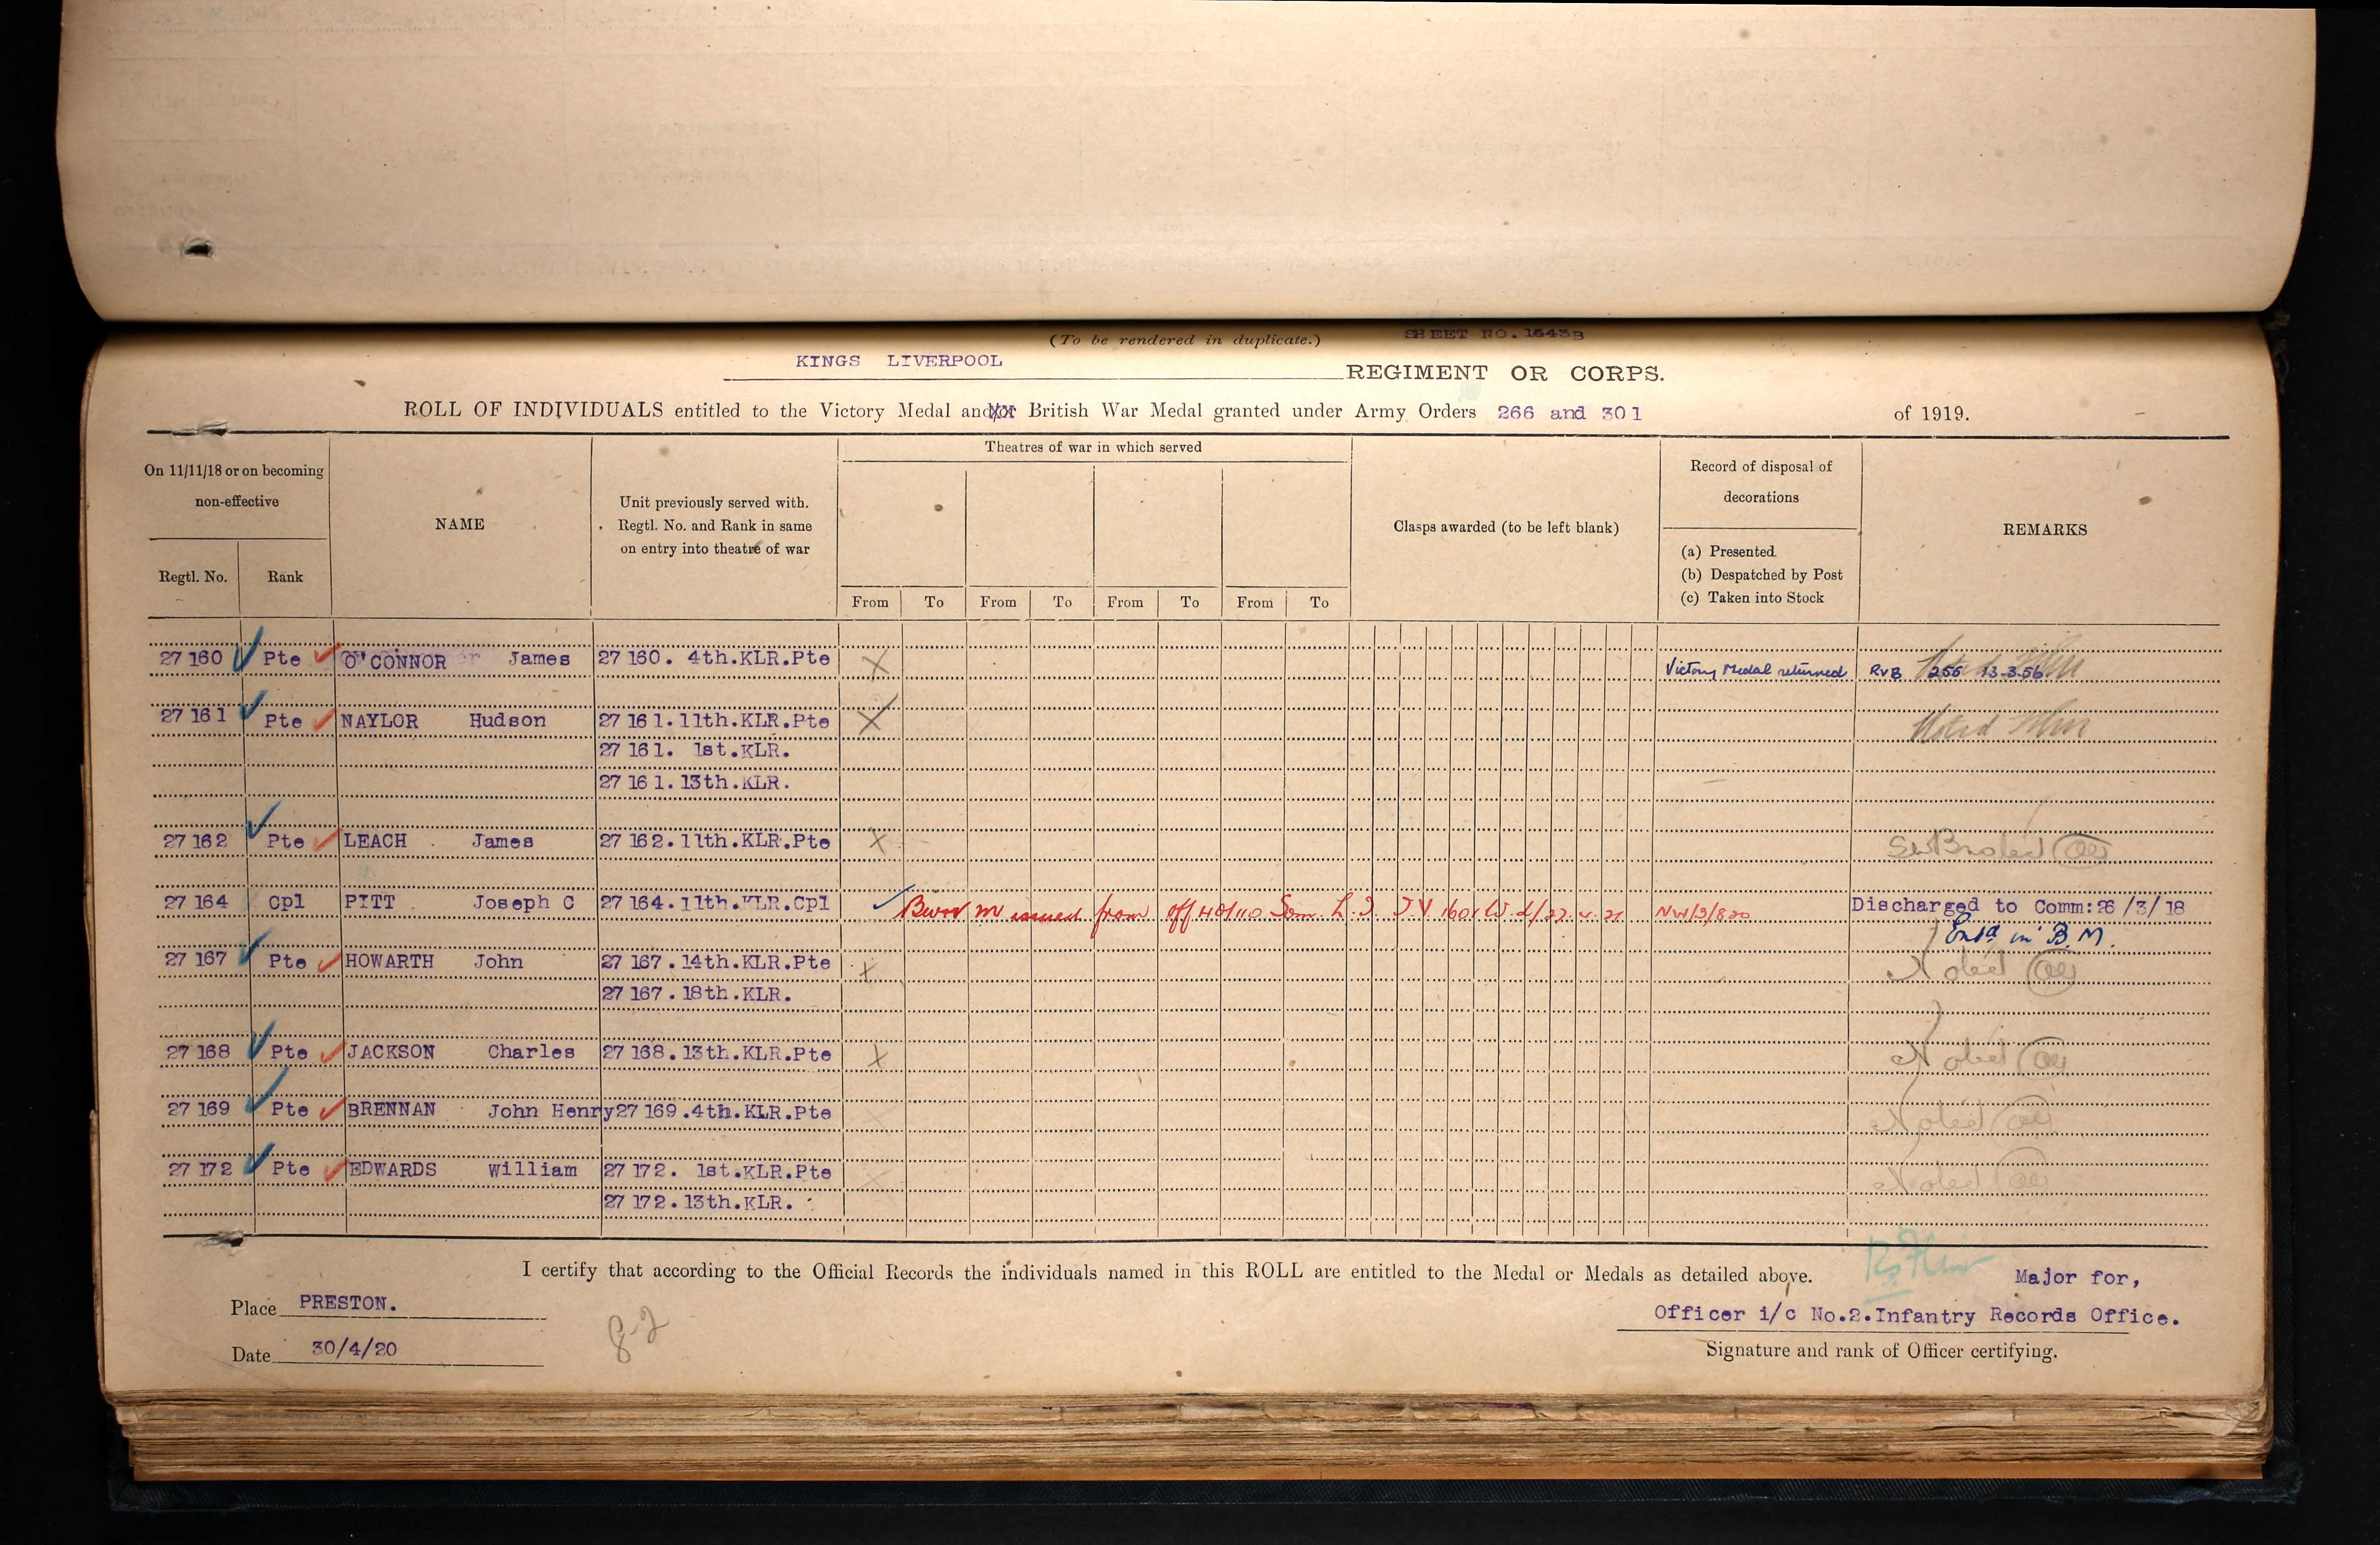 (To be rendered in duplicate.) SHEET NO. 1543B
KINGS LIVERPOOL REGIMENT OR CORPS.
ROLL OF INDIVIDUALS entitled to the Victory Medal and/or British War Medal granted under Army Orders 266 and 301 of 1919.
On 11/11/18 or on becoming non-effective
Regtl. No. Rank
NAME
Unit previously served with.
Regtl. No. and Rank in same
on entry into theatre of war
Theatres of war in which served
From To From To From To From To
Clasps awarded (to be left blank)
Record of disposal of
decorations
(a) Presented
(b) Despatched by Post
(c) Taken into Stock
REMARKS
27160 Pte O'CONNOR James 27160. 4th.KLR.Pte X Victory Medal returned RVB 256 13.3.56
27161 Pte NAYLOR Hudson 27161.11th.KLR.Pte X Noted
27161. 1st.KLR.
27161.13th.KLR.
27162 Pte LEACH James 27162.11th.KLR.Pte X noted
27164 Cpl PITT Joseph C 27164.11th.KLR.Cpl issued from Som. L. I. NW/9/820 Discharged to Comm:26/3/18
in B.M.
27167 Pte HOWARTH John 27167.14th.KLR.Pte X Noted
27167.18th.KLR.
27168 Pte JACKSON Charles 27168.13th.KLR.Pte X Noted
27169 Pte BRENNAN John Henry 27169.4th.KLR.Pte X Noted
27172 Pte EDWARDS William 27172. 1st.KLR.Pte X Noted
27172.13th.KLR.
I certify that according to the Official Records the individuals named in this ROLL are entitled to the Medal or Medals as detailed above.
Major for,
Place PRESTON.
Officer i/c No.2.Infantry Records Office.
Date 30/4/20
Signature and rank of Officer certifying.